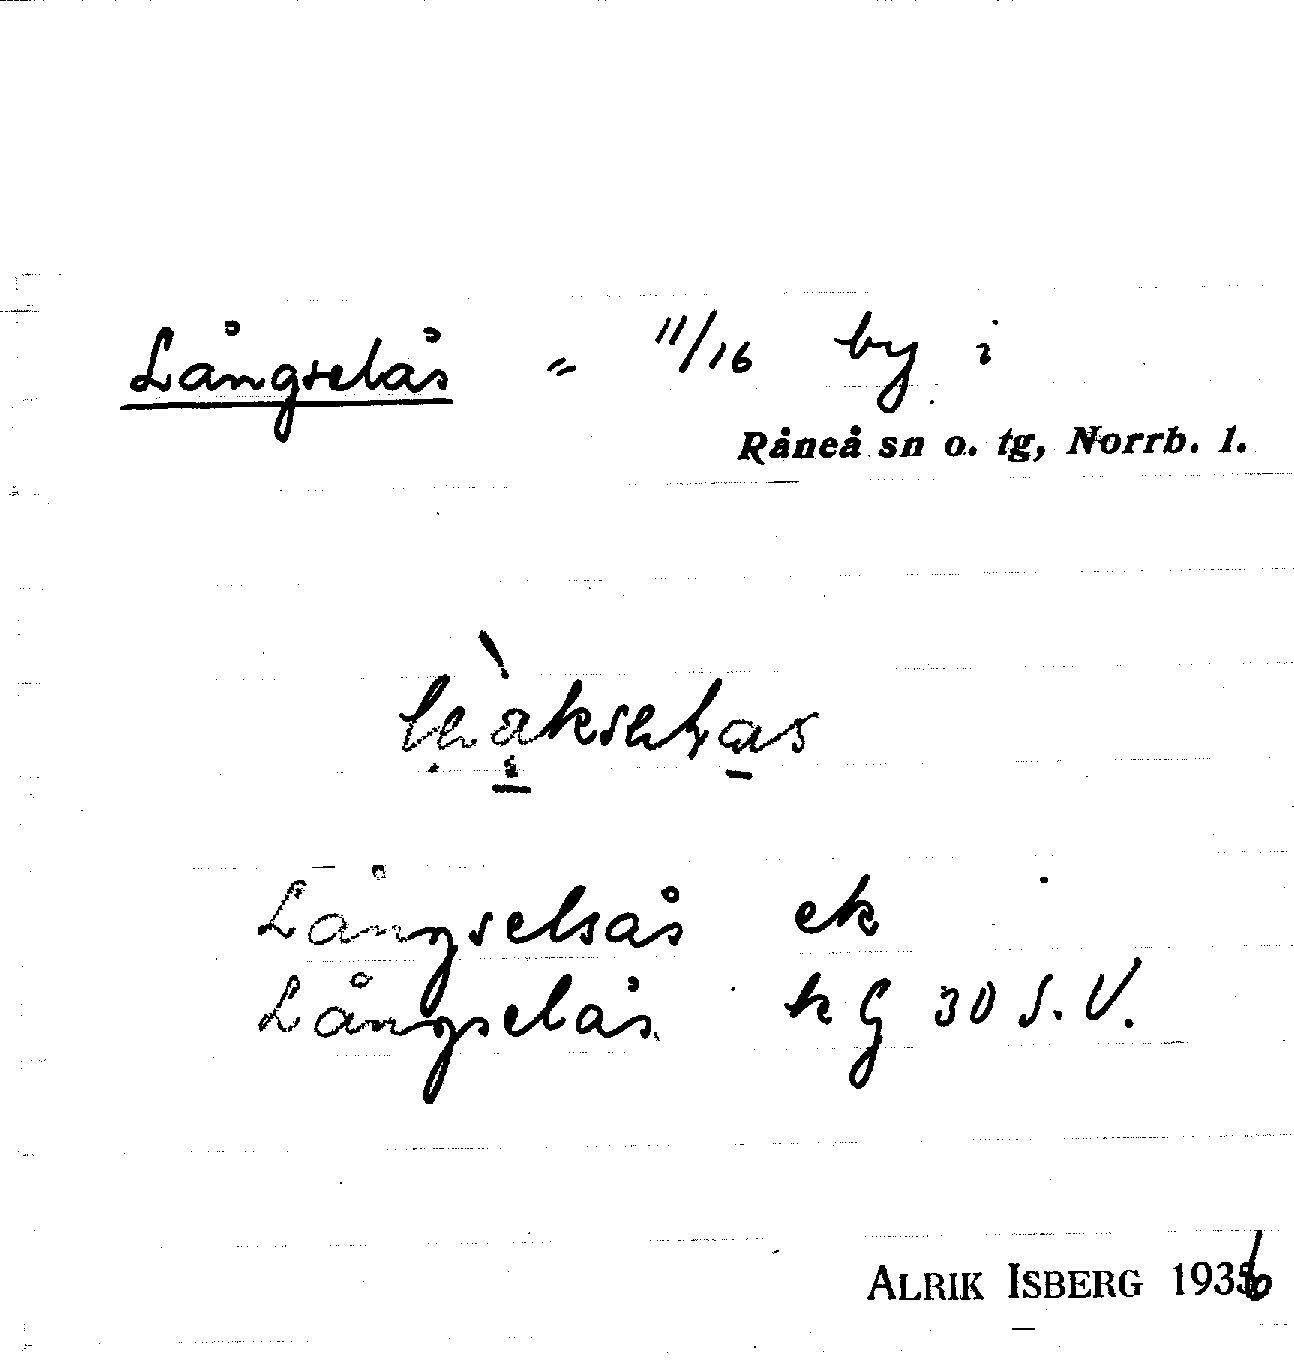 Långselås = 11/16 by i
Råneå sn o. tg, Norrb. l.
Långselsås ek
Långselås kG 30 S.V.
ALRIK ISBERG 1936